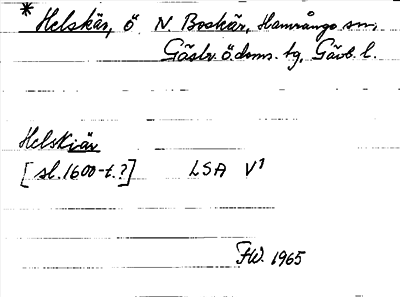 * Helskär, ö N. Boskär, Hamrånge sn,
Gästr. ö. doms. tg, Gävb. l.
Helskiär
[sl. 1600-t.?] LSA V1
FW. 1965